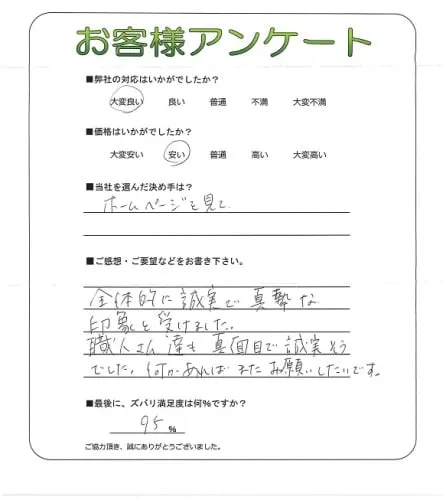 お客様アンケート
■弊社の対応はいかがでしたか？
大変良い 良い 普通 不満 大変不満
■価格はいかがでしたか？
大変安い 安い 普通 高い 大変高い
■当社を選んだ決め手は？
ホームページを見て
■ご感想・ご要望などをお書き下さい。
全体的に誠実で真摯な
印象を受けました。
職人さん達も真面目で誠実そう
でした。何かあればまたお願いしたいです。
■最後に、ズバリ満足度は何%ですか？
95 %
ご協力頂き、誠にありがとうございました。